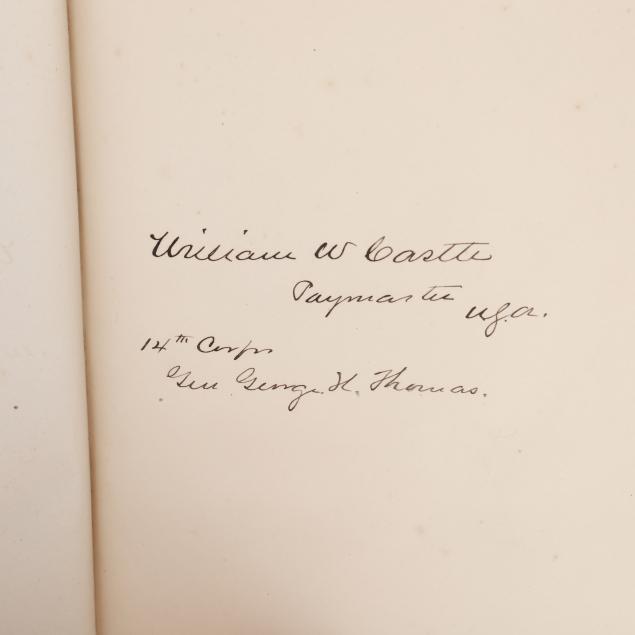 William W Castle
Paymaster U.S.A.
14th Corps
Gen George H. Thomas.